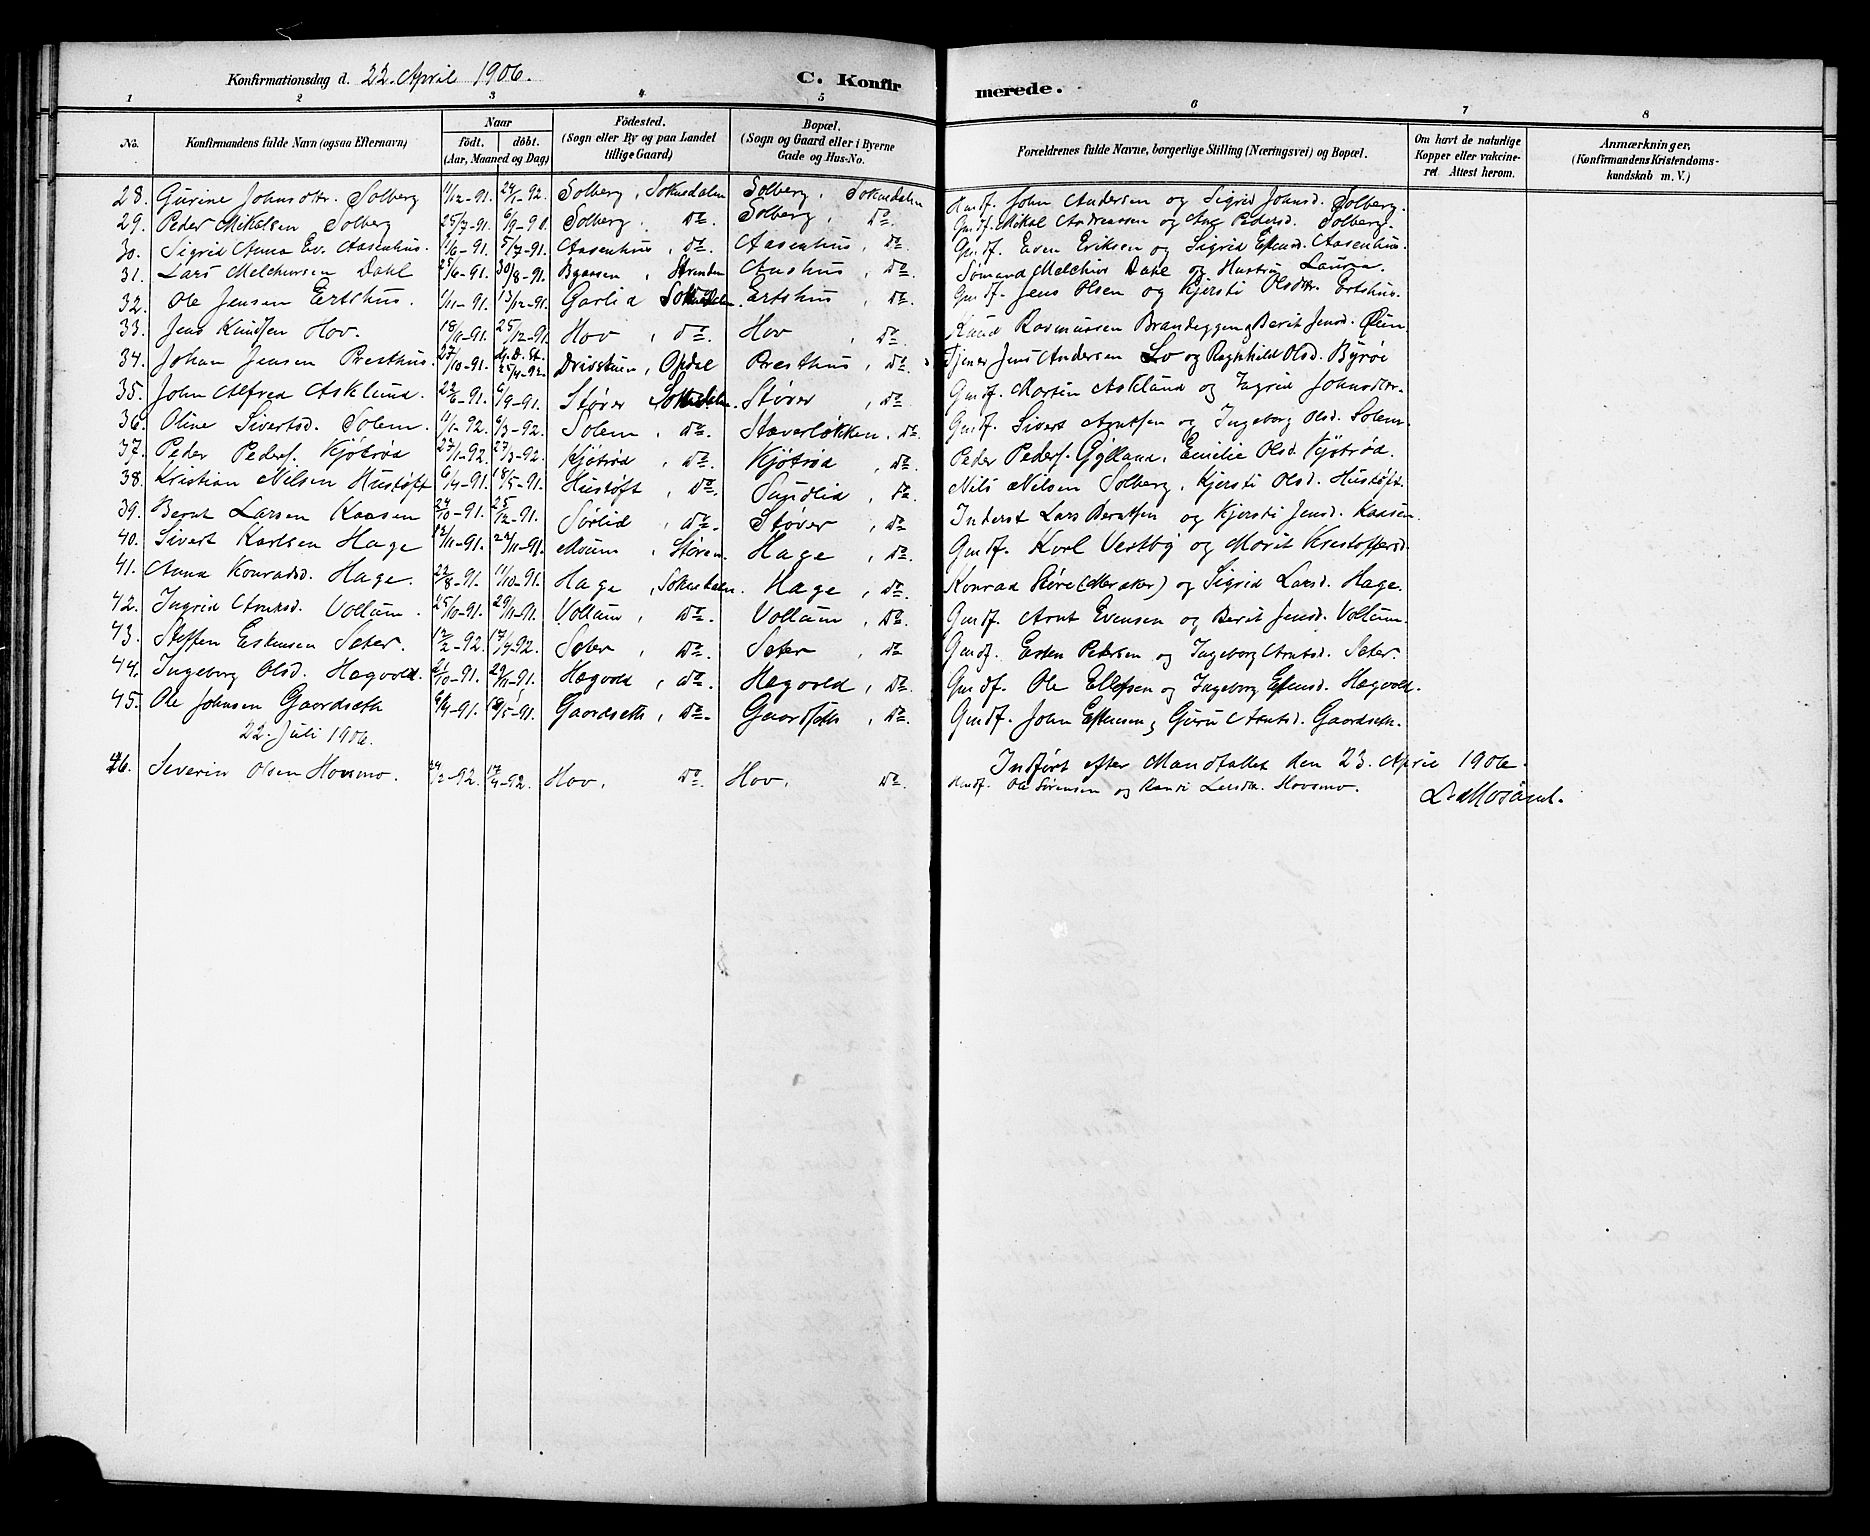 Konfirmationsdag d. 22. April 1906. C. Konfirmerede.
1 2 3 4 5 6 7 8
No. Konfirmandens fulde Navn (ogsaa Efternavn) Naar født. døbt. (Aar, Maaned og Dag) Fødested. (Sogn eller By og paa Landet tillige Gaard) Bopæl. (Sogn og Gaard eller i Byerne Gade og Hus-No. Forældrenes fulde Navne, borgerlige Stilling (Næringsvei) og Bopæl. Om havt de naturlige Kopper eller vakcineret. Attest herom. Anmærkninger. (Konfirmandens Kristendomskundskab m. V.)
28. Gurine Johnsdtr. Solberg 11/12-91. 24/1-92. Solberg, Soknedalen Solberg, Soknedalen John Andersen og Sigrid Johnsd. Solberg.
29. Peder Mikalsen Solberg 25/7-91. 6/9-91. Solberg. do. Solberg, do. Gmdf. Mikal Andreassen og Ane Pedersd. Solberg.
30. Sigrid Anna Ev. Aasenhus. 11/6-91. 5/7-91. Aasenhus, do. Aasenhus, do. Gmdf. Even Eriksen og Sigrid Estensd. Aasenhus.
31. Lars Melchiorsen Dahl 25/6-91. 30/8-91. Byaasen, Strinden Aashus, do. Sømand Melchior Dahl og Hustru Laura.
32. Ole Jensen Ertshus. 1/11-91. 13/12-91. Garlid Soknedalen. Ertshus, do. Gmdf. Jens Olsen og Kjersti Olsdtr. Ertshus.
33. Jens Knudsen Hov. 18/11-91. 25/12-91. Hov, do. Hov, do. Knud Rasmussen Brandeggen, Berit Jensd. Øien
34. Johan Jensen Presthus. 27/10-91. 25/4-92. Drivstuen, Opdal Presthus, do. Tjener Jens Andersen Lo og Ragnhild Olsd. Byrøe
35. John Alfred Asklund. 22/6-91. 6/9-91. Støver Soknedalen. Støver, do. Gmdf. Morten Asklund og Ingrid Johnsdtr.
36. Oline Sivertsd. Solem. 11/1-92. 6/3-92. Solem, do. Støverløkken, do. Gmdf. Sivert Arntsen og Ingeborg Olsd. Solem.
37. Peder Peders. Kjøtrød 27/1-92. 27/3-92. Kjøtrød, do. Kjøtrød, do. Peder Peders. Gylland, Emilie Olsd. Kjøtrød.
38. Kristian Nilsen Hustøft 6/4-91. 18/5-91. Hustøft, do. Sundlid, do. Nils Nilsen Solberg, Kjersti Olsd. Hustøft.
39. Bernt Larsen Kaasen 24/10-91. 25/12-91. Sørlid, do. Støver, do. Inderst Lars Berntsen og Kjersti Jensd. Kaasen.
40. Sivert Karlsen Hage 12/11-91. 22/11-91. Moum, Støren. Hage, do. Gmdf. Karl Vestby og Marit Kristoffersd.
41. Anna Konradsd. Hage. 22/8-91. 11/10-91. Hage, Soknedalen. Hage, do. Konrad Støre (Meraker) og Sigrid Larsd. Hage.
42. Ingrid Arntsd. Vollum. 25/10-91. 29/11-91. Vollum, do. Vollum, do. Gmdf. Arnt Evensen og Berit Jensd. Vollum.
43. Steffen Estensen Seter. 12/2-92. 17/4-92. Seter, do. Seter, do Gmdf. Esten Petersen og Ingeborg Arntsd. Seter.
44. Ingeborg Olsd. Hægvold. 21/10-91. 29/11-91. Hægvold, do. Hægvold, do. Gmdf. Ole Ellefsen og Ingeborg Estensd. Hægvold.
45. Ole Johnsen Gaardseth 6/4-91. 18/5-91. Gaardseth, do. Gaardseth, do. Gmdf. John Estensen, Guru Arntsd. Gaardseth.
22. Juli 1906. Indført efter Mandtallet den 23. April 1906.
46. Severin Olsen Hovsmo. 24/2-92. 17/4-92. Hov, do. Hov, do. Gmdf. Ole Sørensen og Randi Larsdtr. Hovsmo.